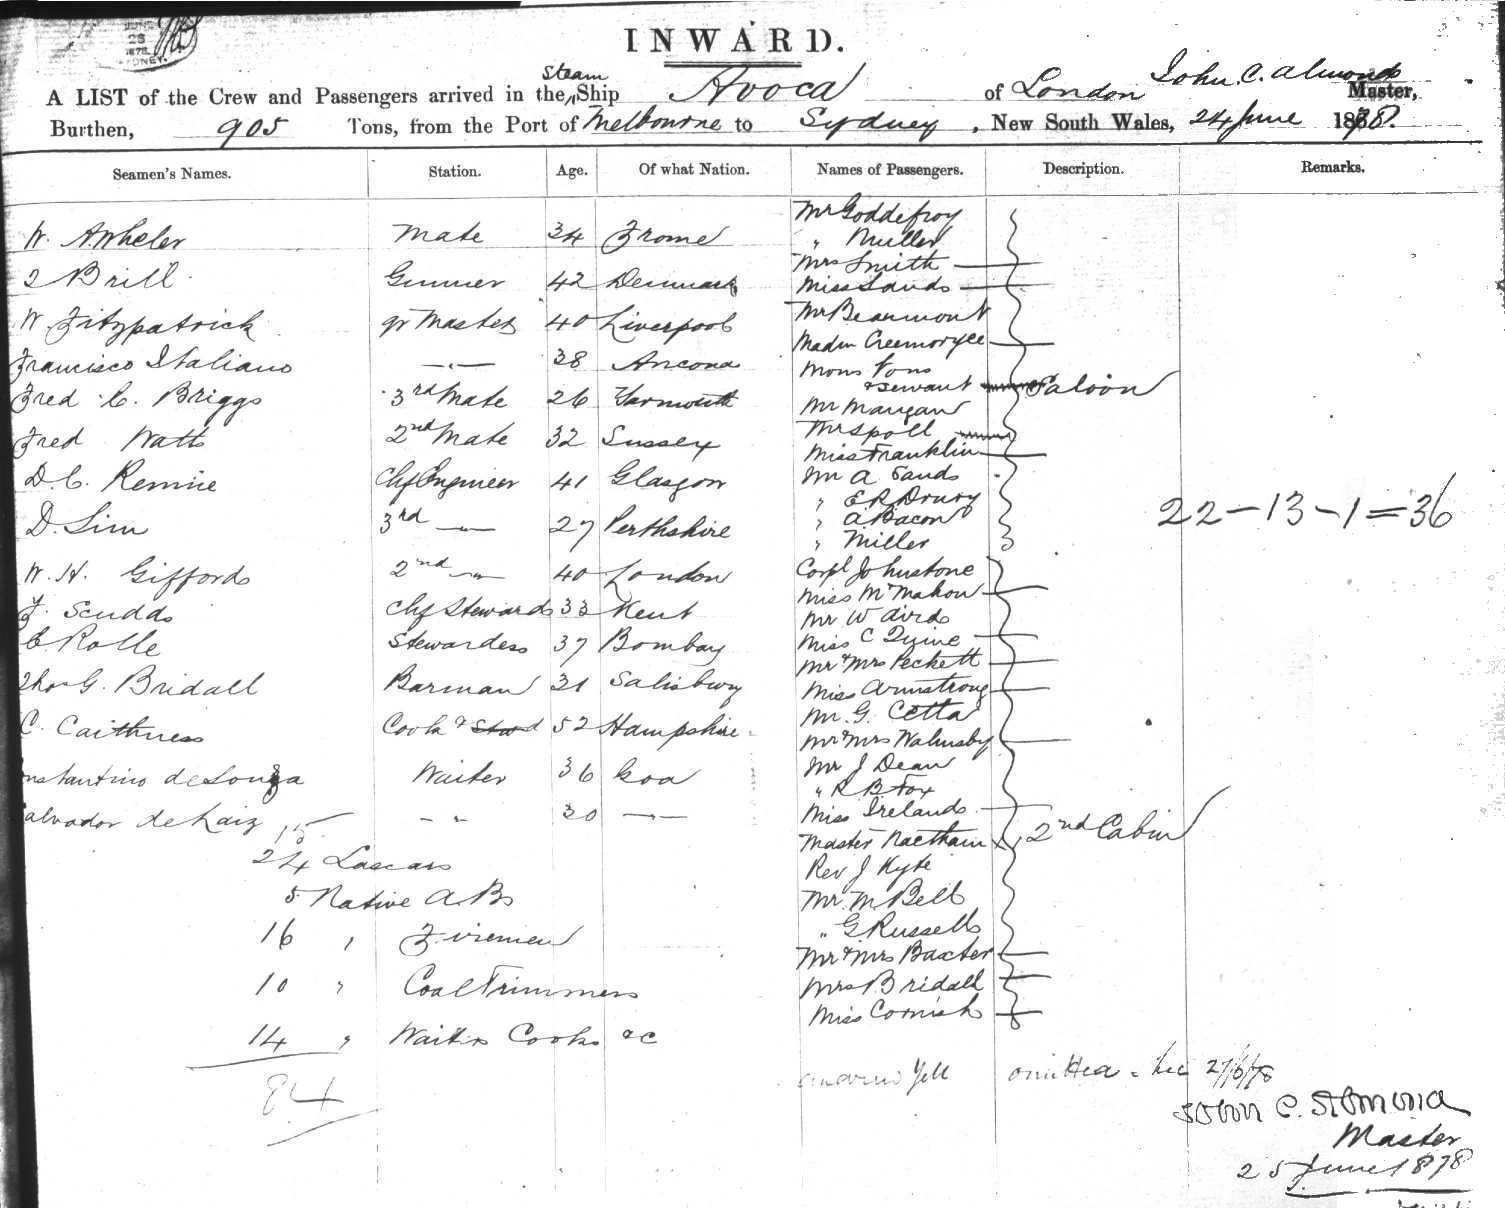 JUNE
28
1878
SYDNEY
INWARD.
A LIST of the Crew and Passengers arrived in the Steam Ship Avoca of London John C. Almond Master,
Burthen, 905 Tons, from the Port of Melbourne to Sydney, New South Wales, 24 June 1878.
Seamen's Names. Station. Age. Of what Nation. Names of Passengers. Description. Remarks.
W. A Wheler Mate 34 Frome
Brill Gunner 42 Denmark
W. Fitzpatrick qr Master 40 Liverpool
Francisco Italiano -"- 38 Ancona
Fred C. Briggs 3rd Mate 26 Yarmouth
Fred Watts 2nd Mate 32 Sussex
D. C. Rennie Chf Engineer 41 Glasgow
D. Sim 3rd -"- 27 Perthshire
W. H. Gifford 2nd -"- 40 London
F. Scudds Chf Steward 33 Kent
C. Rolle Stewardess 37 Bombay
Thos G. Bridall Barman 31 Salisbury
C. Caithness Cook & Stwd 52 Hampshire
nstantino de Souza Waiter 36 Goa
alvador de 30 -"-
15
24 Lascars
5 Native A.Bs
16 " Firemen
10 " Coal Trimmers
14 " Waiters Cooks &c
84
Mr Goddefroy
" Muller
Mrs Smith
Miss Sands
Mr Beaumont
Madm
Mons Pons
& servant Saloon
Mr Mangan
Mr Spoll
Miss Franklin
Mr A Sands
" E R Drury
" A Bacon
" Miller
Corpl Johnstone
Miss McMahon
Mr W Aird
Miss C Quine
Mr & Mrs Peckett
Miss Armstrong
Mr. G. Cetta
Mr & Mrs Walmsby
Mr J Dean
" R B Fox
Miss Ireland
2nd Cabin
Master
Rev J Kyte
Mr. M Bell
" G Russell
Mr & Mrs Baxter
Mrs Bridall
Miss Cornish
22 - 13 - 1 = 36
Yell omitted 27/6/78
John C. Almond
Master
25 June 1878